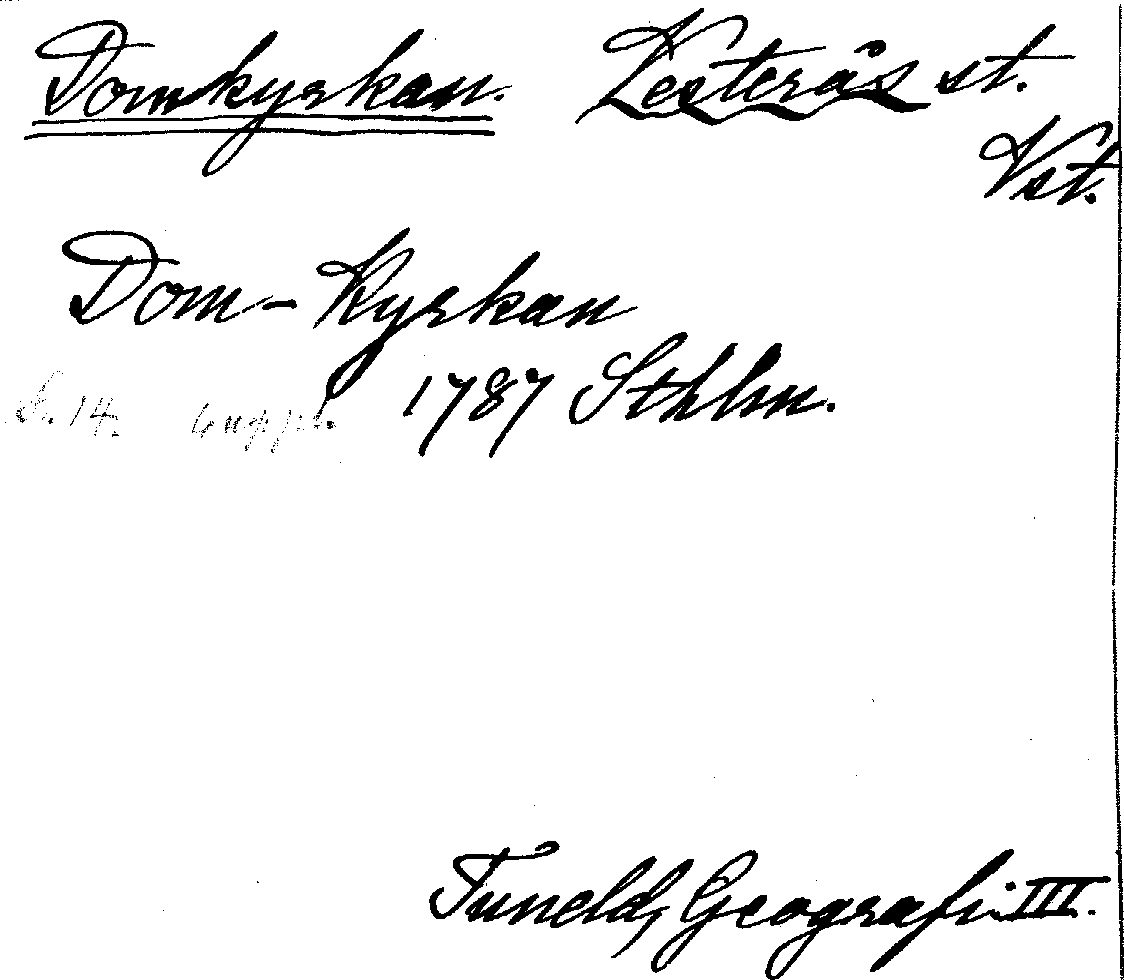 Domkyrkan. Vesterås st.
Vst.
Dom-Kyrkan
1787 Sthlm.
S. 14.
Tuneld, Geografi III.